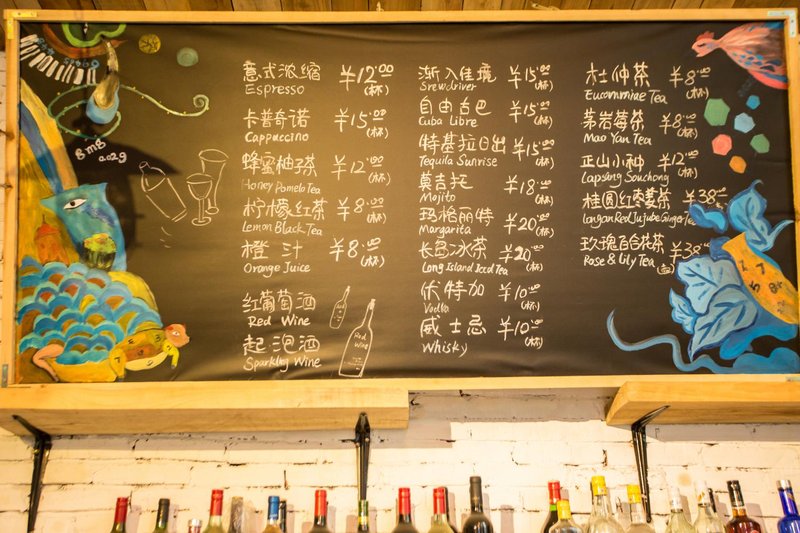 意式浓缩 ¥12.00
Espresso (杯)
卡普奇诺 ¥15.00
Cappuccino (杯)
蜂蜜柚子茶 ¥12.00
Honey Pomelo Tea (杯)
柠檬红茶 ¥8.00
Lemon Black Tea (杯)
橙汁 ¥8.00
Orange Juice (杯)
红葡萄酒
Red Wine
起泡酒
Sparkling Wine
Red Wine
渐入佳境 ¥15.00
Srewdriver (杯)
自由古巴 ¥15.00
Cuba Libre (杯)
特基拉日出 ¥15.00
Tequila Sunrise (杯)
莫吉托 ¥18.00
Mojito (杯)
玛格丽特 ¥20.00
Margarita (杯)
长岛冰茶 ¥20.00
Long Island Iced Tea (杯)
伏特加 ¥10.00
Vodka (杯)
威士忌 ¥10.00
Whisky (杯)
杜仲茶 ¥8.00
Eucommiae Tea (杯)
茅岩莓茶 ¥8.00
Mao Yan Tea (杯)
正山小种 ¥12.00
Lapsang Souchong (杯)
桂圆红枣姜茶 ¥38.00
Longan Red Jujube Ginger Tea
玫瑰百合花茶 ¥38.00
Rose & Lily Tea (壶)